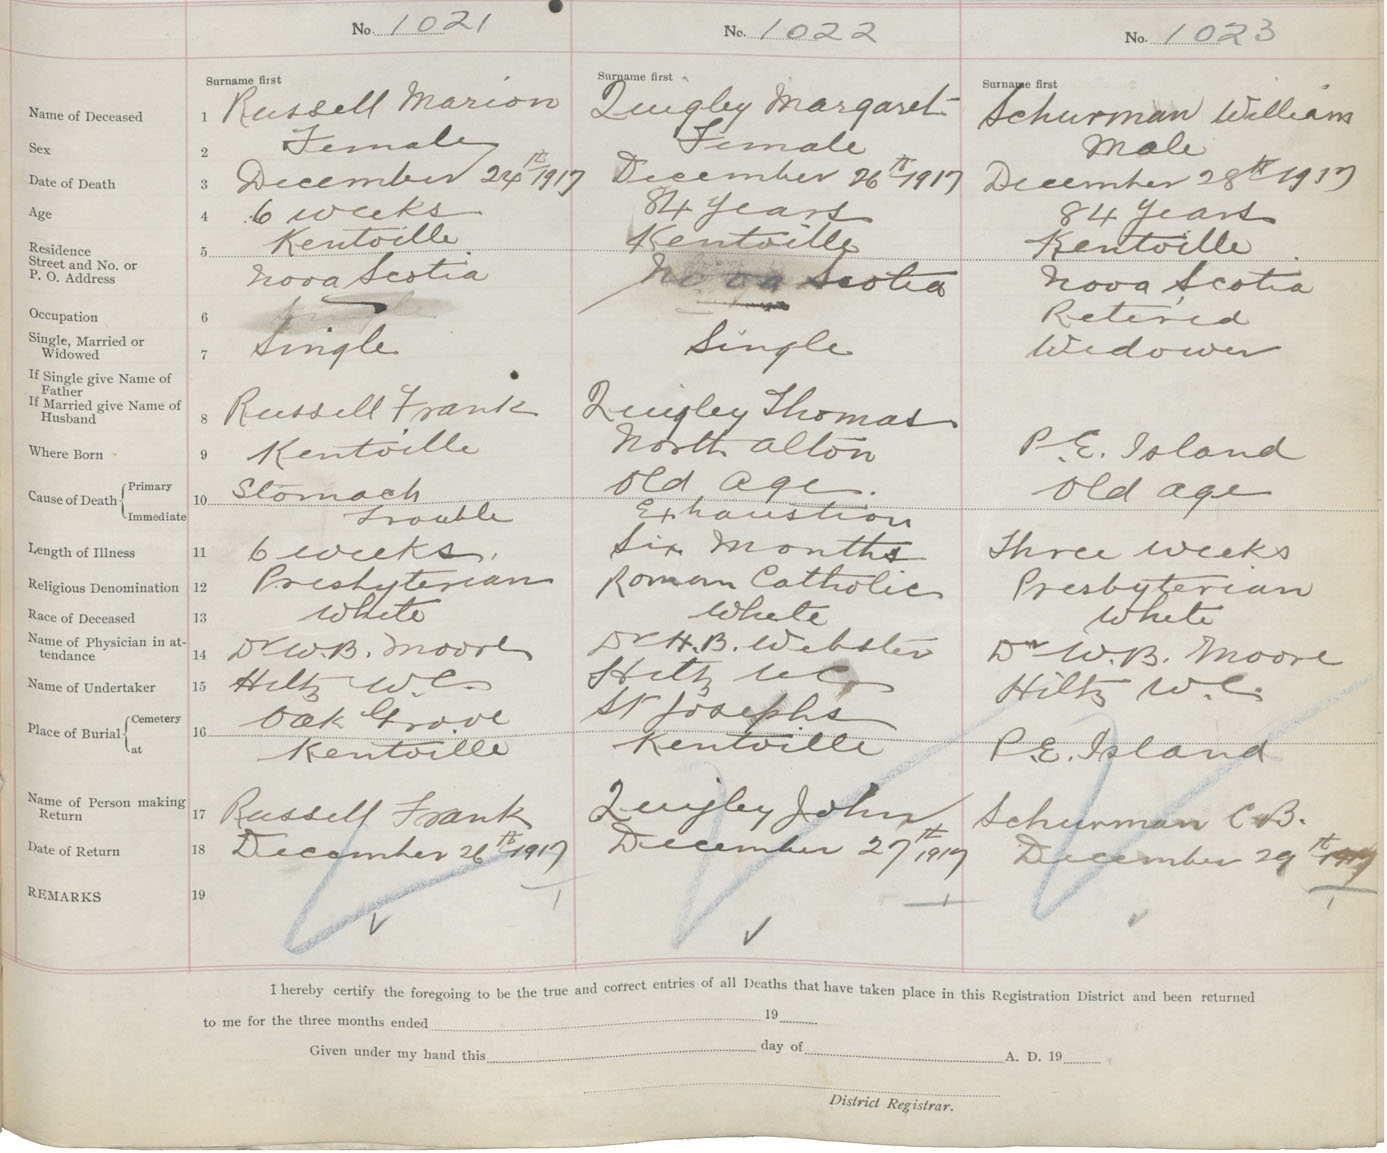 No. 1021
No. 1022
No. 1023
Surname first
Surname first
Surname first
Name of Deceased 1 Russell Marion Quigley Margaret Schurman William
Sex 2 Female Female Male
Date of Death 3 December 24th 1917 December 26th 1917 December 28th 1917
Age 4 6 weeks 84 years 84 years
Residence 5 Kentville Kentville Kentville
Street and No. or
P. O. Address Nova Scotia Nova Scotia Nova Scotia
Occupation 6 Single Retired
Single, Married or
Widowed 7 Single Single Widower
If Single give Name of
Father
If Married give Name of
Husband 8 Russell Frank Quigley Thomas
Where Born 9 Kentville North Alton P.E. Island
Cause of Death Primary 10 Stomach Old Age. Old age
Immediate Trouble Exhaustion
Length of Illness 11 6 weeks. Six Months Three weeks
Religious Denomination 12 Presbyterian Roman Catholic Presbyterian
Race of Deceased 13 White White White
Name of Physician in at-
tendance 14 Dr W.B. Moore Dr H.B. Webster Dr W.B. Moore
Name of Undertaker 15 Hiltz W.C. Hiltz W.C. Hiltz W.C.
Place of Burial Cemetery 16 Oak Grove St Josephs
at Kentville Kentville P.E. Island
Name of Person making
Return 17 Russell Frank Quigley John Schurman C.B.
Date of Return 18 December 26th 1917 December 27th 1917 December 29th 1917
REMARKS 19
I hereby certify the foregoing to be the true and correct entries of all Deaths that have taken place in this Registration District and been returned
to me for the three months ended 19
Given under my hand this day of A. D. 19
District Registrar.